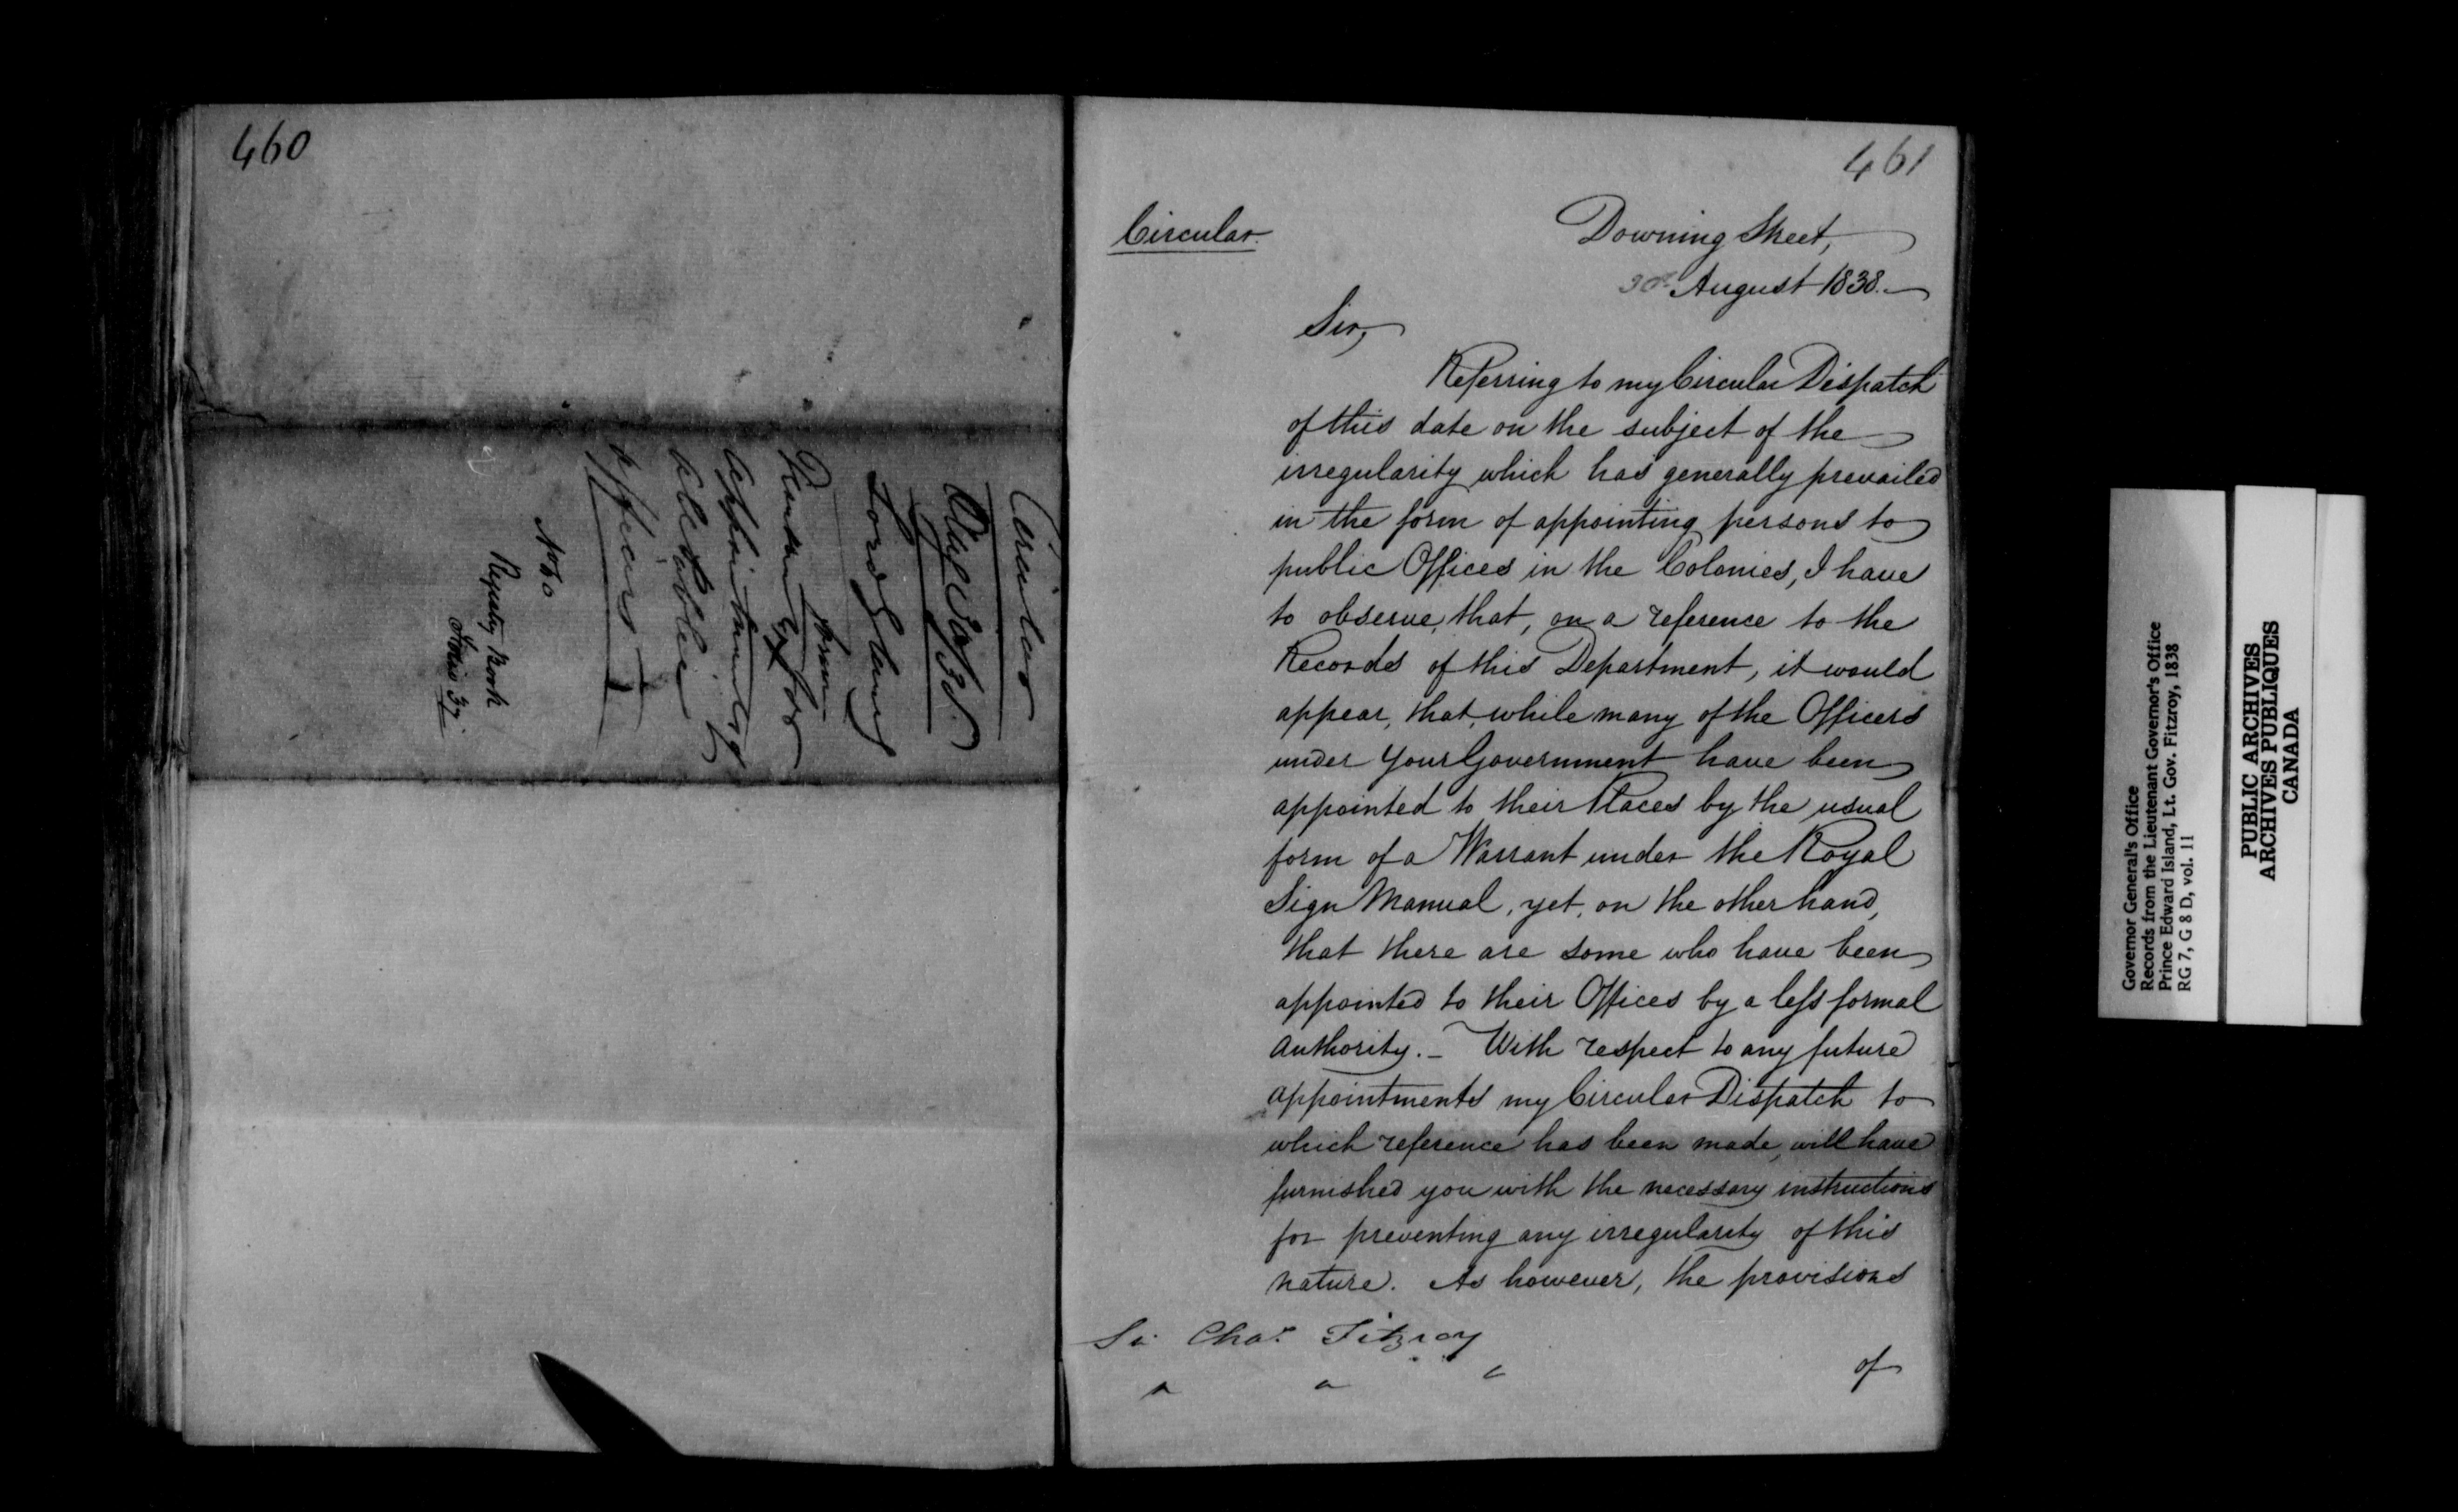 460
Circular
Aug 30/38.
Lord Glenelg
for
appointments of
Officers
No 60
Registry Book
461
Circular.
Downing Street,
30th August 1838.
Sir,
Referring to my Circular Dispatch
of this date on the subject of the
irregularity which has generally prevailed
in the form of appointing persons to
public Offices in the Colonies, I have
to observe, that, on a reference to the
Records of this Department, it would
appear, that, while many of the Officers
under Your Government have been
appointed to their Places by the usual
form of a Warrant under the Royal
Sign Manual, yet, on the other hand,
that there are some who have been
appointed to their Offices by a less formal
authority. - With respect to any future
appointments my Circular Dispatch to
which reference has been made, will have
furnished you with the necessary instructions
for preventing any irregularity of this
nature. As however, the provisions
Sir Chas. Fitzroy
of
Governor General's Office
Records from the Lieutenant Governor's Office
Prince Edward Island, Lt. Gov. Fitzroy, 1838
RG 7, G 8 D, vol. 11
PUBLIC ARCHIVES
ARCHIVES PUBLIQUES
CANADA